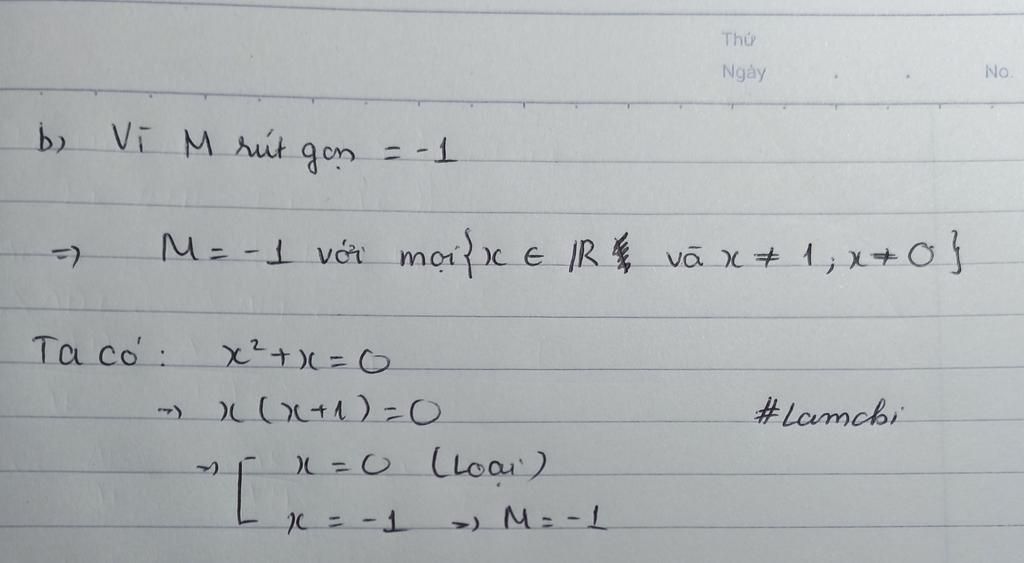 Thứ
Ngày . . No.
b) Vì M rút gọn = -1
=> M = -1 với mọi {x ∈ IR và x ≠ 1 ; x ≠ 0}
Ta có : x² + x = 0
=> x (x+1) = 0
#Lamchi
=> [ x = 0 (Loại)
x = -1 => M = -1